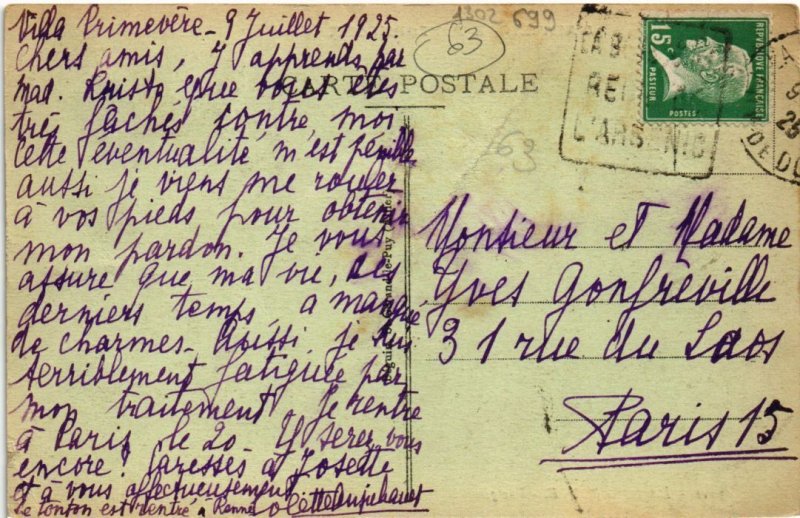 Villa Primevère - 9 Juillet 1925.
Chers amis, J'apprends par
mad. que vous êtes
très fâchés contre moi
cette éventualité m'est pénible
aussi je viens me rouler
à vos pieds pour obtenir
mon pardon. Je vous
assure que ma vie, ces
derniers temps, a manqué
de charmes. Aussi je suis
terriblement fatiguée par
mon traitement. Je rentre
à Paris le 20. Y serez-vous
encore? Caresses à Josette
et à vous affectueusement
Le tonton est rentré à Rennes
1302 699
63
CARTE POSTALE
163
15c
REPUBLIQUE FRANÇAISE
PASTEUR
POSTES
LA B
REI
L'ARSENIC
9
25
Monsieur et Madame
Yves Gonfréville
31 rue du Laos
Paris 15